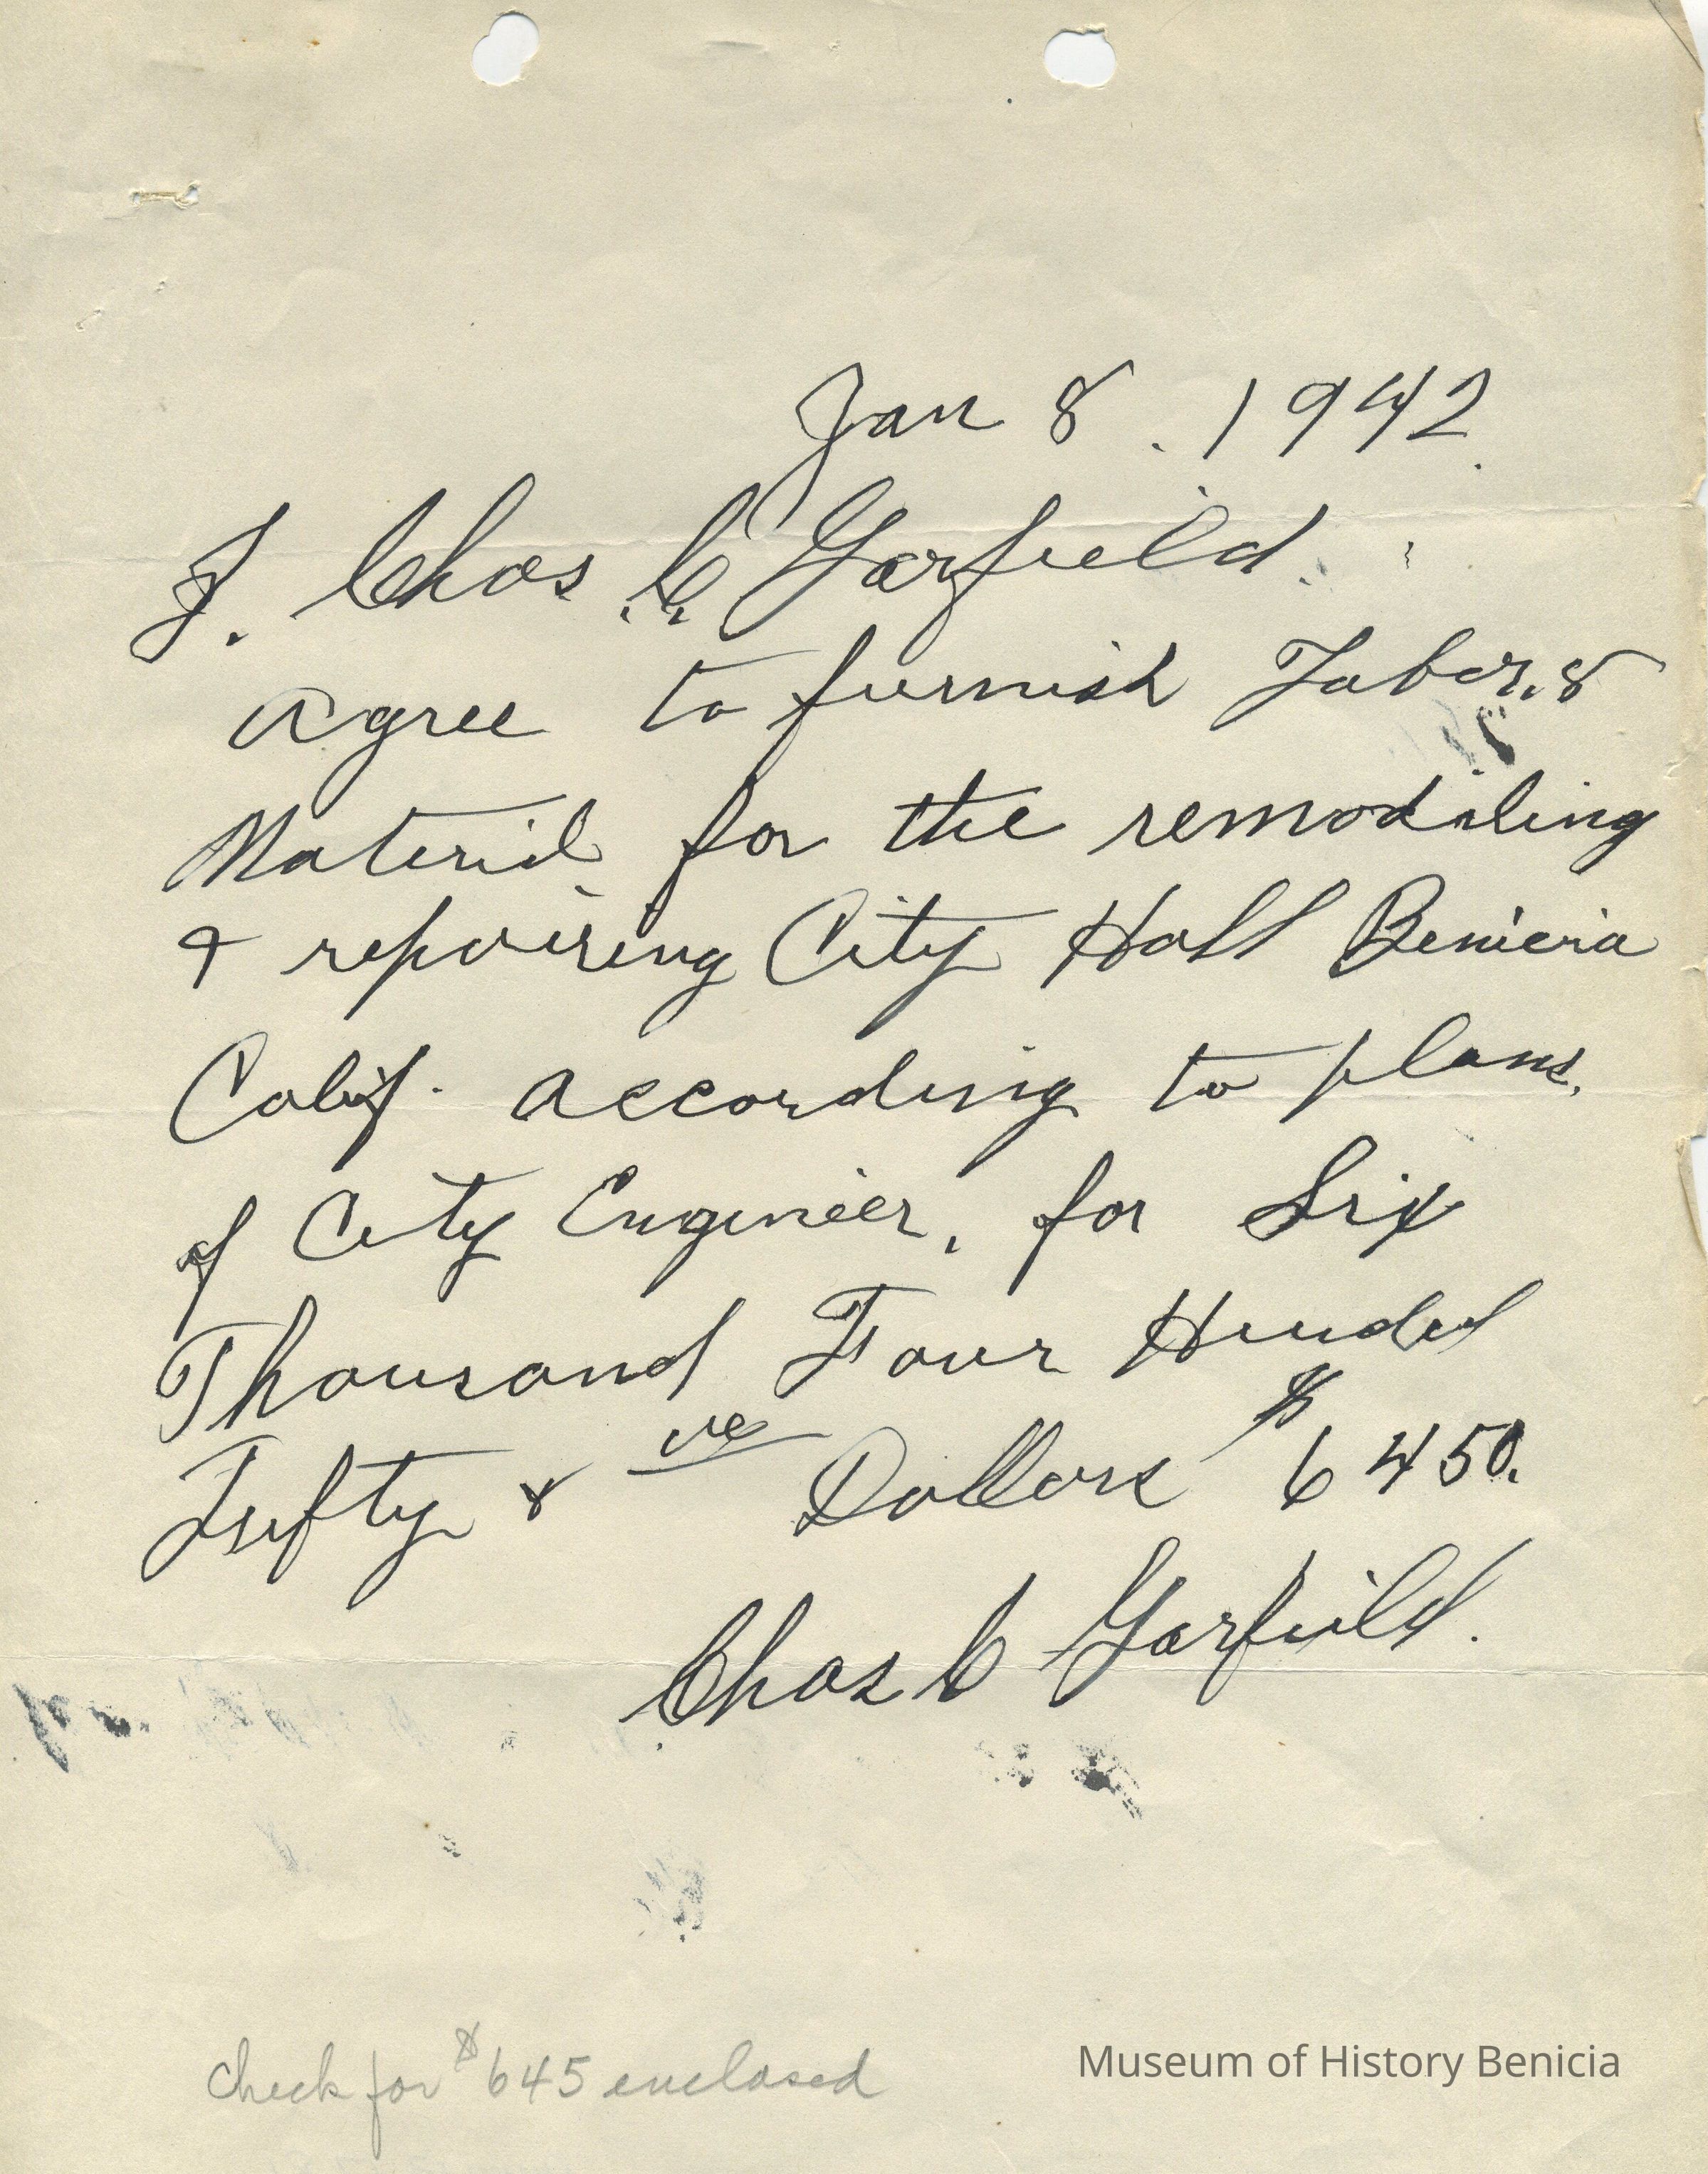 Jan 8. 1942.
I. Chas. C. Garfield.
agree to furnish Labor. &
Material for the remodiling
& repairing City Hall Benicia
Calif. according to plans.
of City Engineer, for Six
Thousand Four Hunded
Fifty & Dollars $6450.
Chas C Garfield.
check for $645 enclosed
Museum of History Benicia